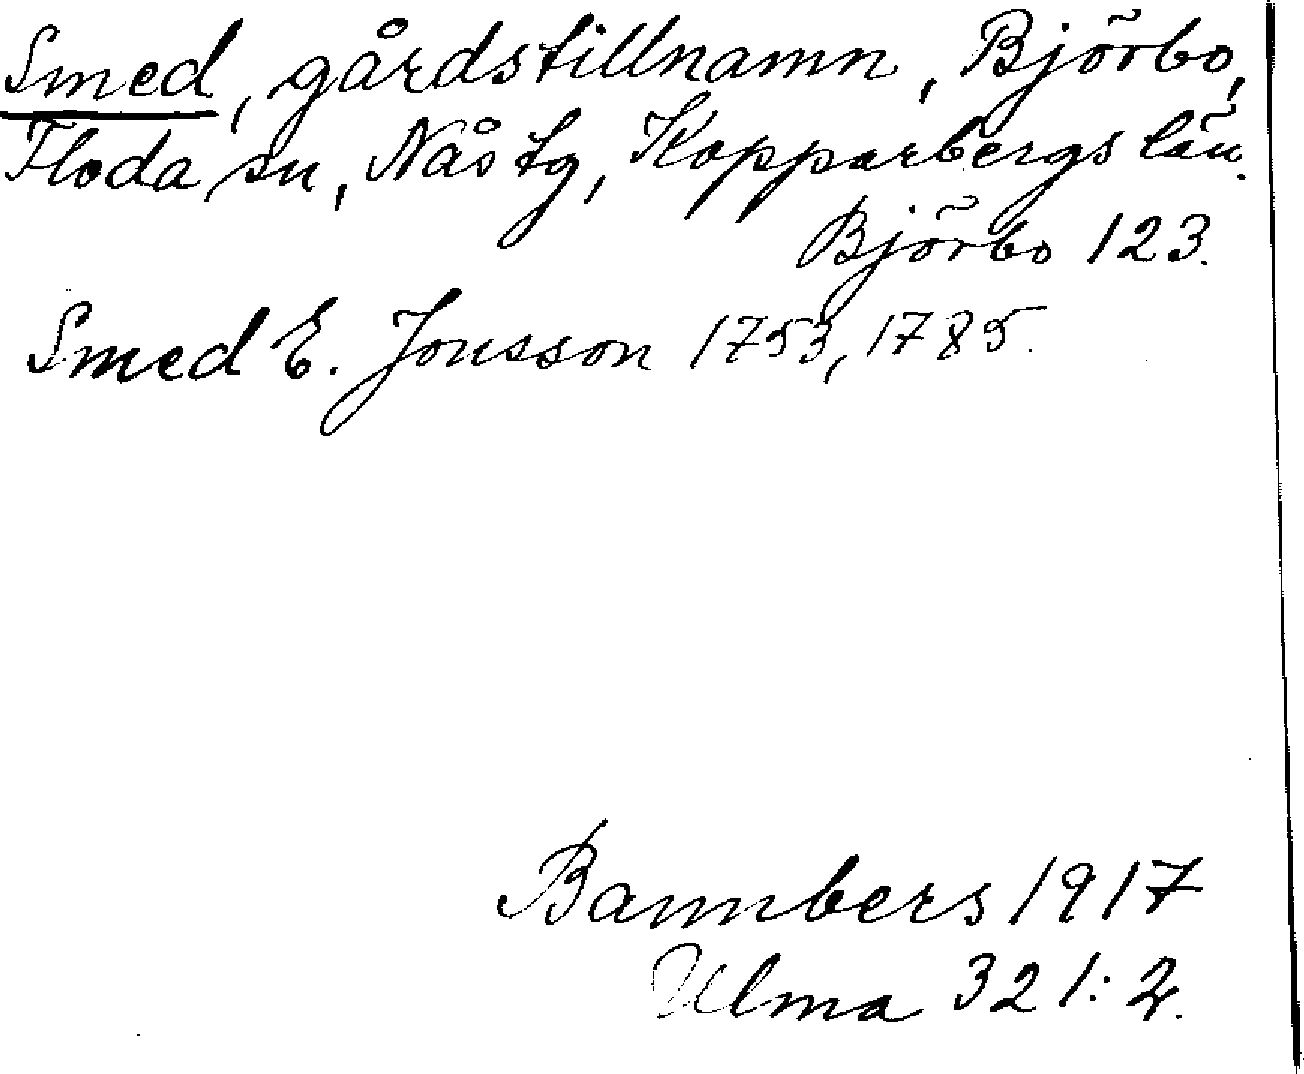 Smed, gårdstillnamn, Björbo,
Floda sn, Nås tg, Kopparbergs län.
Björbo 123.
Smed E. Jonsson 1753, 1785.
Bannbers 1917
Ulma 321:2.